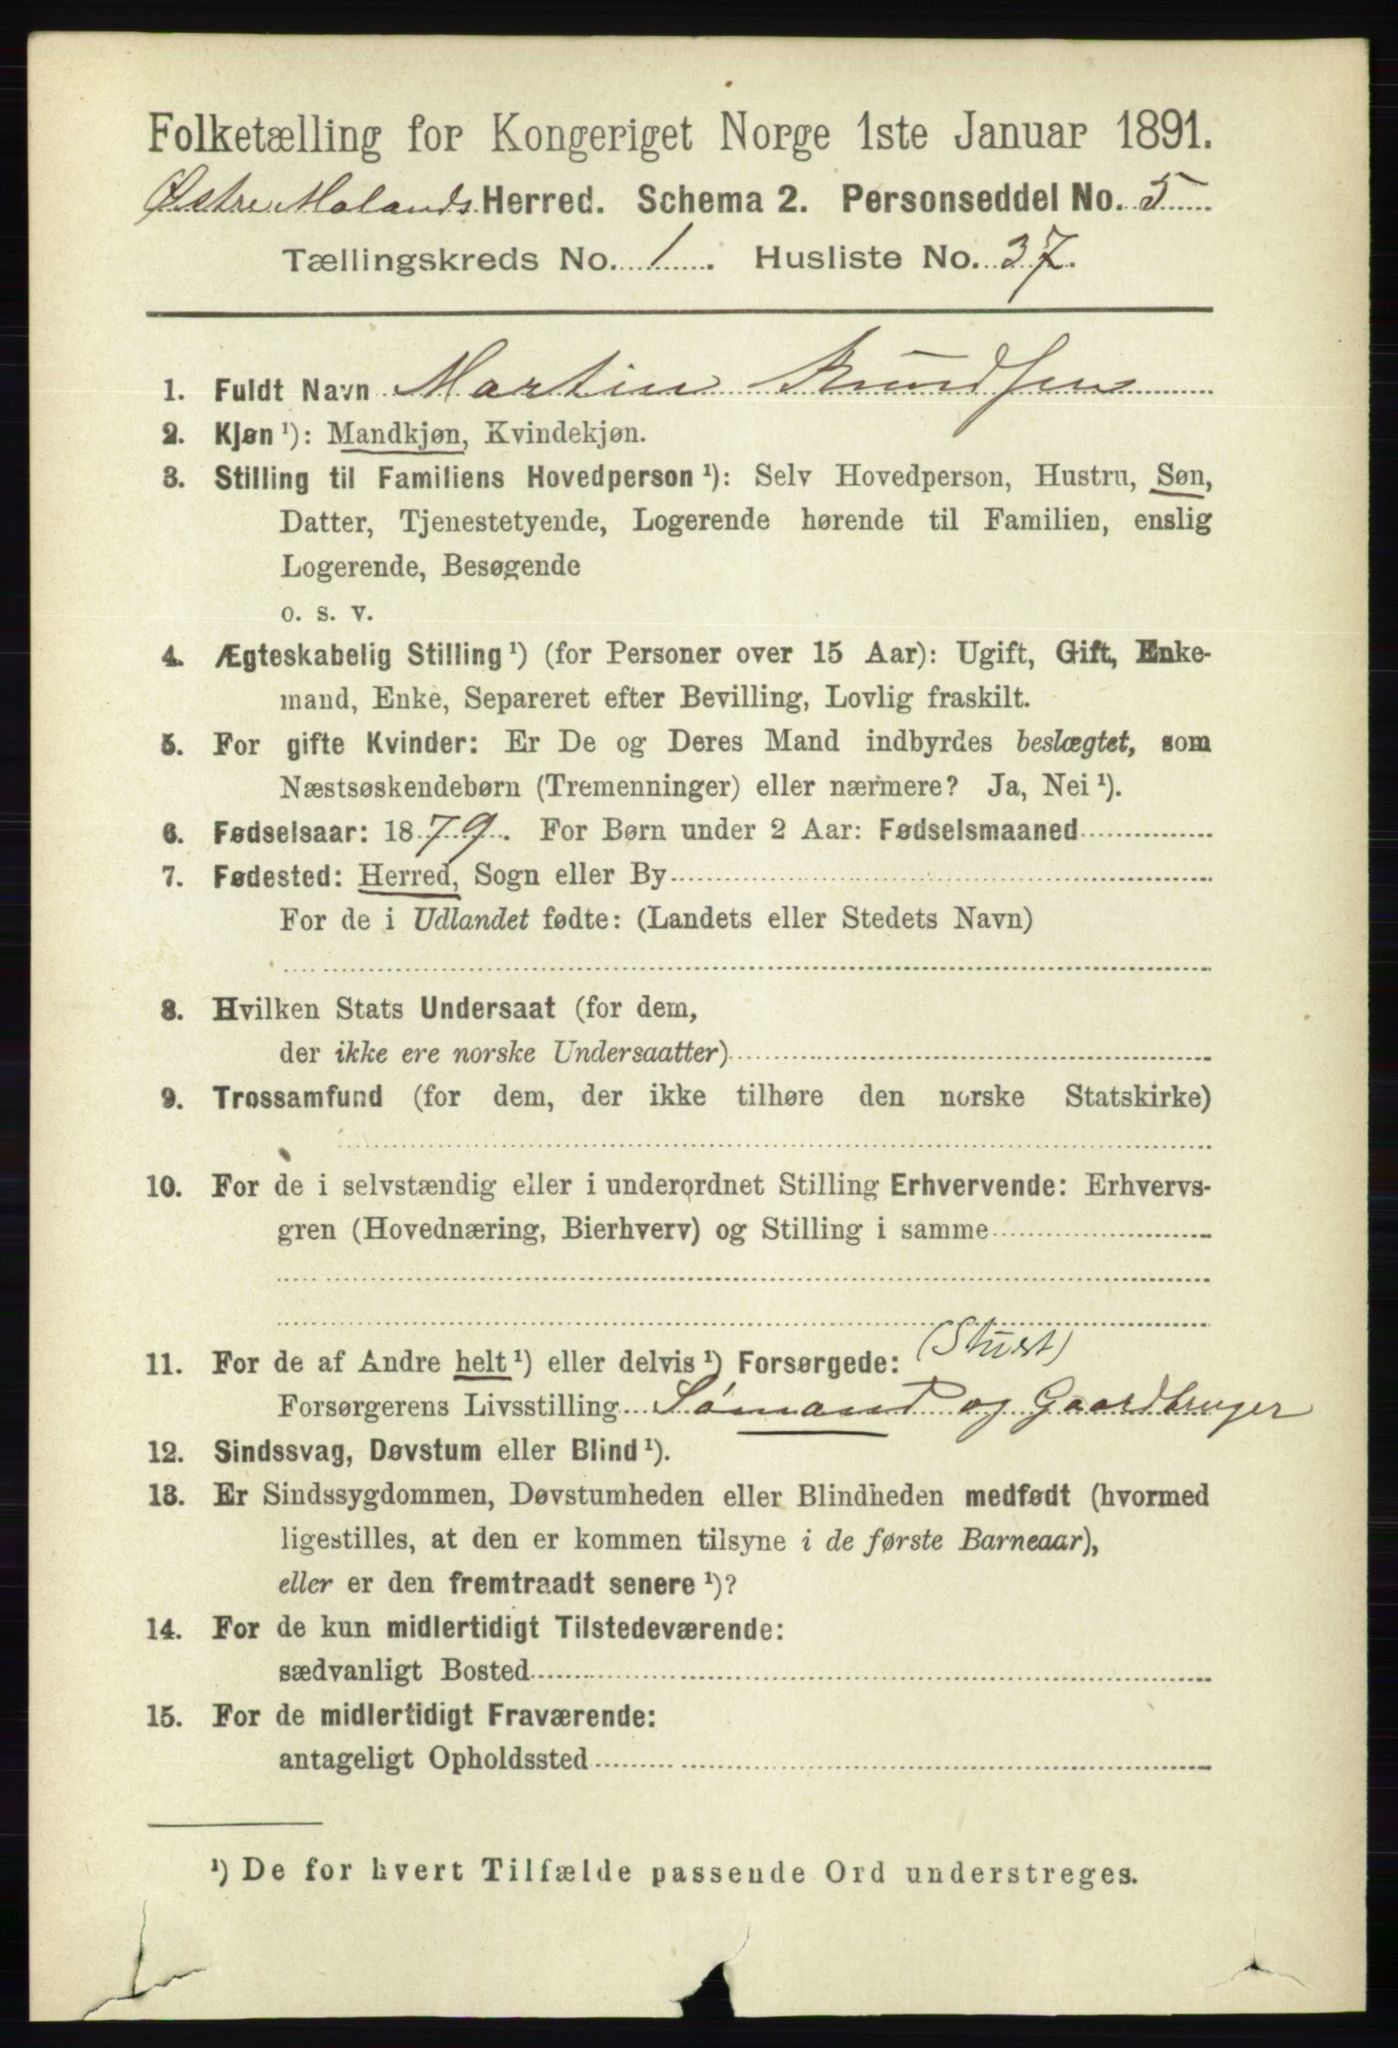 Folketælling for Kongeriget Norge 1ste Januar 1891.
Østre Molands Herred. Schema 2. Personseddel No. 5
Tællingskreds No. 1. Husliste No. 37.
1. Fuldt Navn Martin Knudsen
2. Kjøn ¹): Mandkjøn, Kvindekjøn.
3. Stilling til Familiens Hovedperson ¹): Selv Hovedperson, Hustru, Søn,
Datter, Tjenestetyende, Logerende hørende til Familien, enslig
Logerende, Besøgende
o. s. v.
4. Ægteskabelig Stilling ¹) (for Personer over 15 Aar): Ugift, Gift, Enke-
mand, Enke, Separeret efter Bevilling, Lovlig fraskilt.
5. For gifte Kvinder: Er De og Deres Mand indbyrdes beslægtet, som
Næstsøskendebørn (Tremenninger) eller nærmere? Ja, Nei ¹).
6. Fødselsaar: 1879. For Børn under 2 Aar: Fødselsmaaned
7. Fødested: Herred, Sogn eller By
For de i Udlandet fødte: (Landets eller Stedets Navn)
8. Hvilken Stats Undersaat (for dem,
der ikke ere norske Undersaatter)
9. Trossamfund (for dem, der ikke tilhøre den norske Statskirke)
10. For de i selvstændig eller i underordnet Stilling Erhvervende: Erhvervs-
gren (Hovednæring, Bierhverv) og Stilling i samme
11. For de af Andre helt ¹) eller delvis ¹) Forsørgede:
Forsørgerens Livsstilling Sømand og Gaardbruger
12. Sindssvag, Døvstum eller Blind ¹).
13. Er Sindssygdommen, Døvstumheden eller Blindheden medfødt (hvormed
ligestilles, at den er kommen tilsyne i de første Barneaar),
eller er den fremtraadt senere ¹)?
14. For de kun midlertidigt Tilstedeværende:
sædvanligt Bosted
15. For de midlertidigt Fraværende:
antageligt Opholdssted
¹) De for hvert Tilfælde passende Ord understreges.